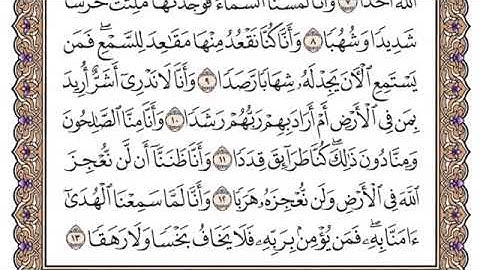 ٱللَّهُ أَحَدًا ٧ وَأَنَّا لَمَسْنَا ٱلسَّمَآءَ فَوَجَدْنَٰهَا مُلِئَتْ حَرَسًا
شَدِيدًا وَشُهُبًا ٨ وَأَنَّا كُنَّا نَقْعُدُ مِنْهَا مَقَٰعِدَ لِلسَّمْعِ ۖ فَمَن
يَسْتَمِعِ ٱلْـَٔانَ يَجِدْ لَهُۥ شِهَابًا رَّصَدًا ٩ وَأَنَّا لَا نَدْرِىٓ أَشَرٌّ أُرِيدَ
بِمَن فِى ٱلْأَرْضِ أَمْ أَرَادَ بِهِمْ رَبُّهُمْ رَشَدًا ١٠ وَأَنَّا مِنَّا ٱلصَّٰلِحُونَ
وَمِنَّا دُونَ ذَٰلِكَ ۖ كُنَّا طَرَآئِقَ قِدَدًا ١١ وَأَنَّا ظَنَنَّآ أَن لَّن نُّعْجِزَ
ٱللَّهَ فِى ٱلْأَرْضِ وَلَن نُّعْجِزَهُۥ هَرَبًا ١٢ وَأَنَّا لَمَّا سَمِعْنَا ٱلْهُدَىٰٓ
ءَامَنَّا بِهِۦ ۖ فَمَن يُؤْمِنۢ بِرَبِّهِۦ فَلَا يَخَافُ بَخْسًا وَلَا رَهَقًا ١٣